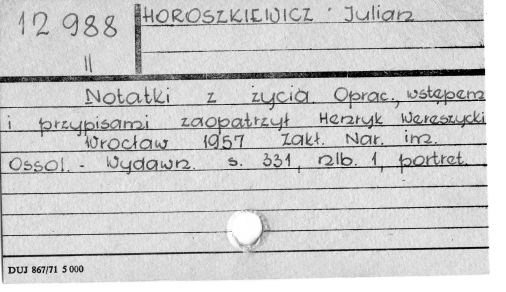 12 988
II
HOROSZKIEWICZ Julian
Notatki z życia. Oprac., wstępem
i przypisami zaopatrzył Henryk Wereszycki
Wrocław 1957 Zakł. Nar. im.
Ossol. - Wydawn. s. 331, nlb. 1, portret.
DUJ 867/71 5 000